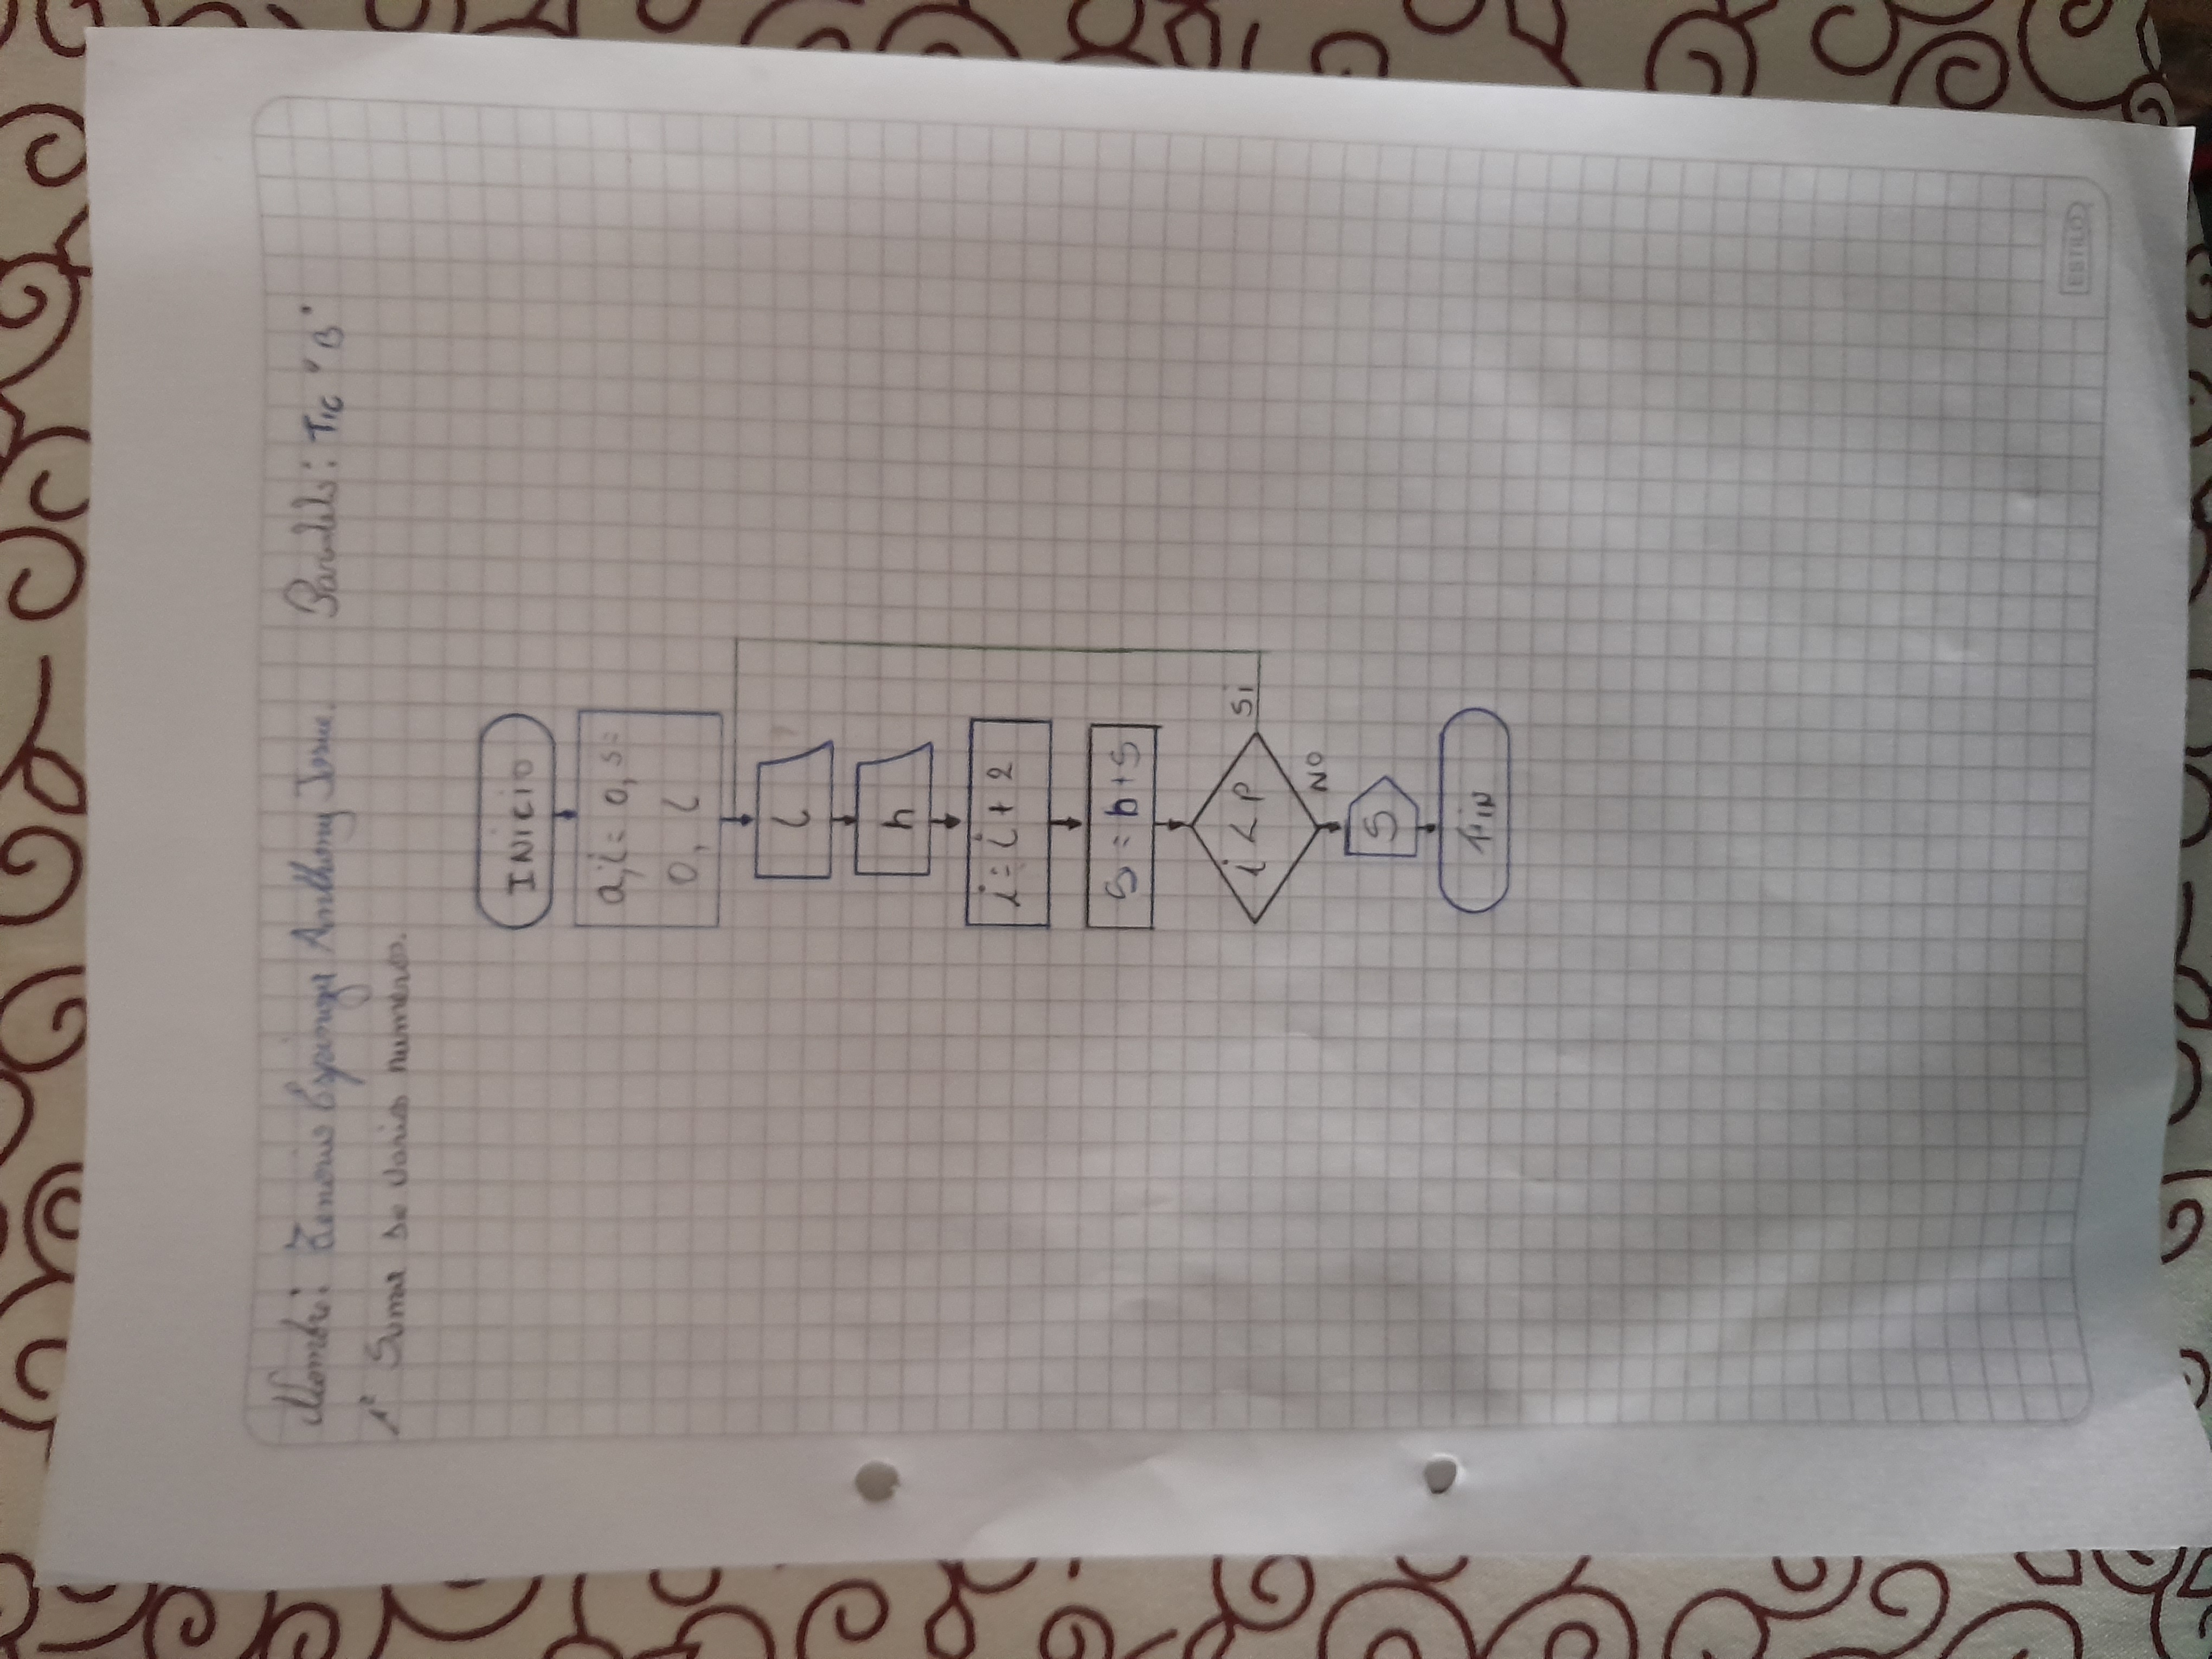 Nombre: Zenorio Espinoza Anthony Josue. Paralelo: TIC "B"
1º Suma de varios numeros.
INICIO
a, i = 0, s =
0, l
l
n
i = i + 2
S = b + S
i < P
Si
NO
S
FIN
ESTILO